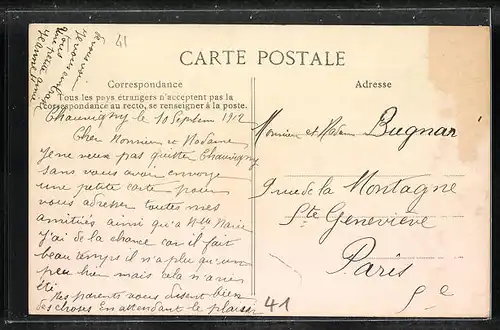 41
CARTE POSTALE
Correspondance
Tous les pays étrangers n'acceptent pas la
correspondance au recto, se renseigner à la poste.
Chauvigny le 10 Septem 1912
Cher Monsieur et Madame
Je ne veux pas quitter Chauvigny
sans vous avoir envoyé
une petite carte pour
vous adresser toutes mes
amitiés ainsi qu'a Marie
J'ai de la chance car il fait
beau temps il n'a plu qu'un
peu hier mais cela n'a rien
été
Mes parents vous disent bien
des choses En attendant le plaisir
de vous voir
Je vous embrasse
Votre petite amie
Jeanne
Adresse
Monsieur et Madame Bugnar
9 rue de la Montagne
Ste Geneviève
Paris
5 e
41